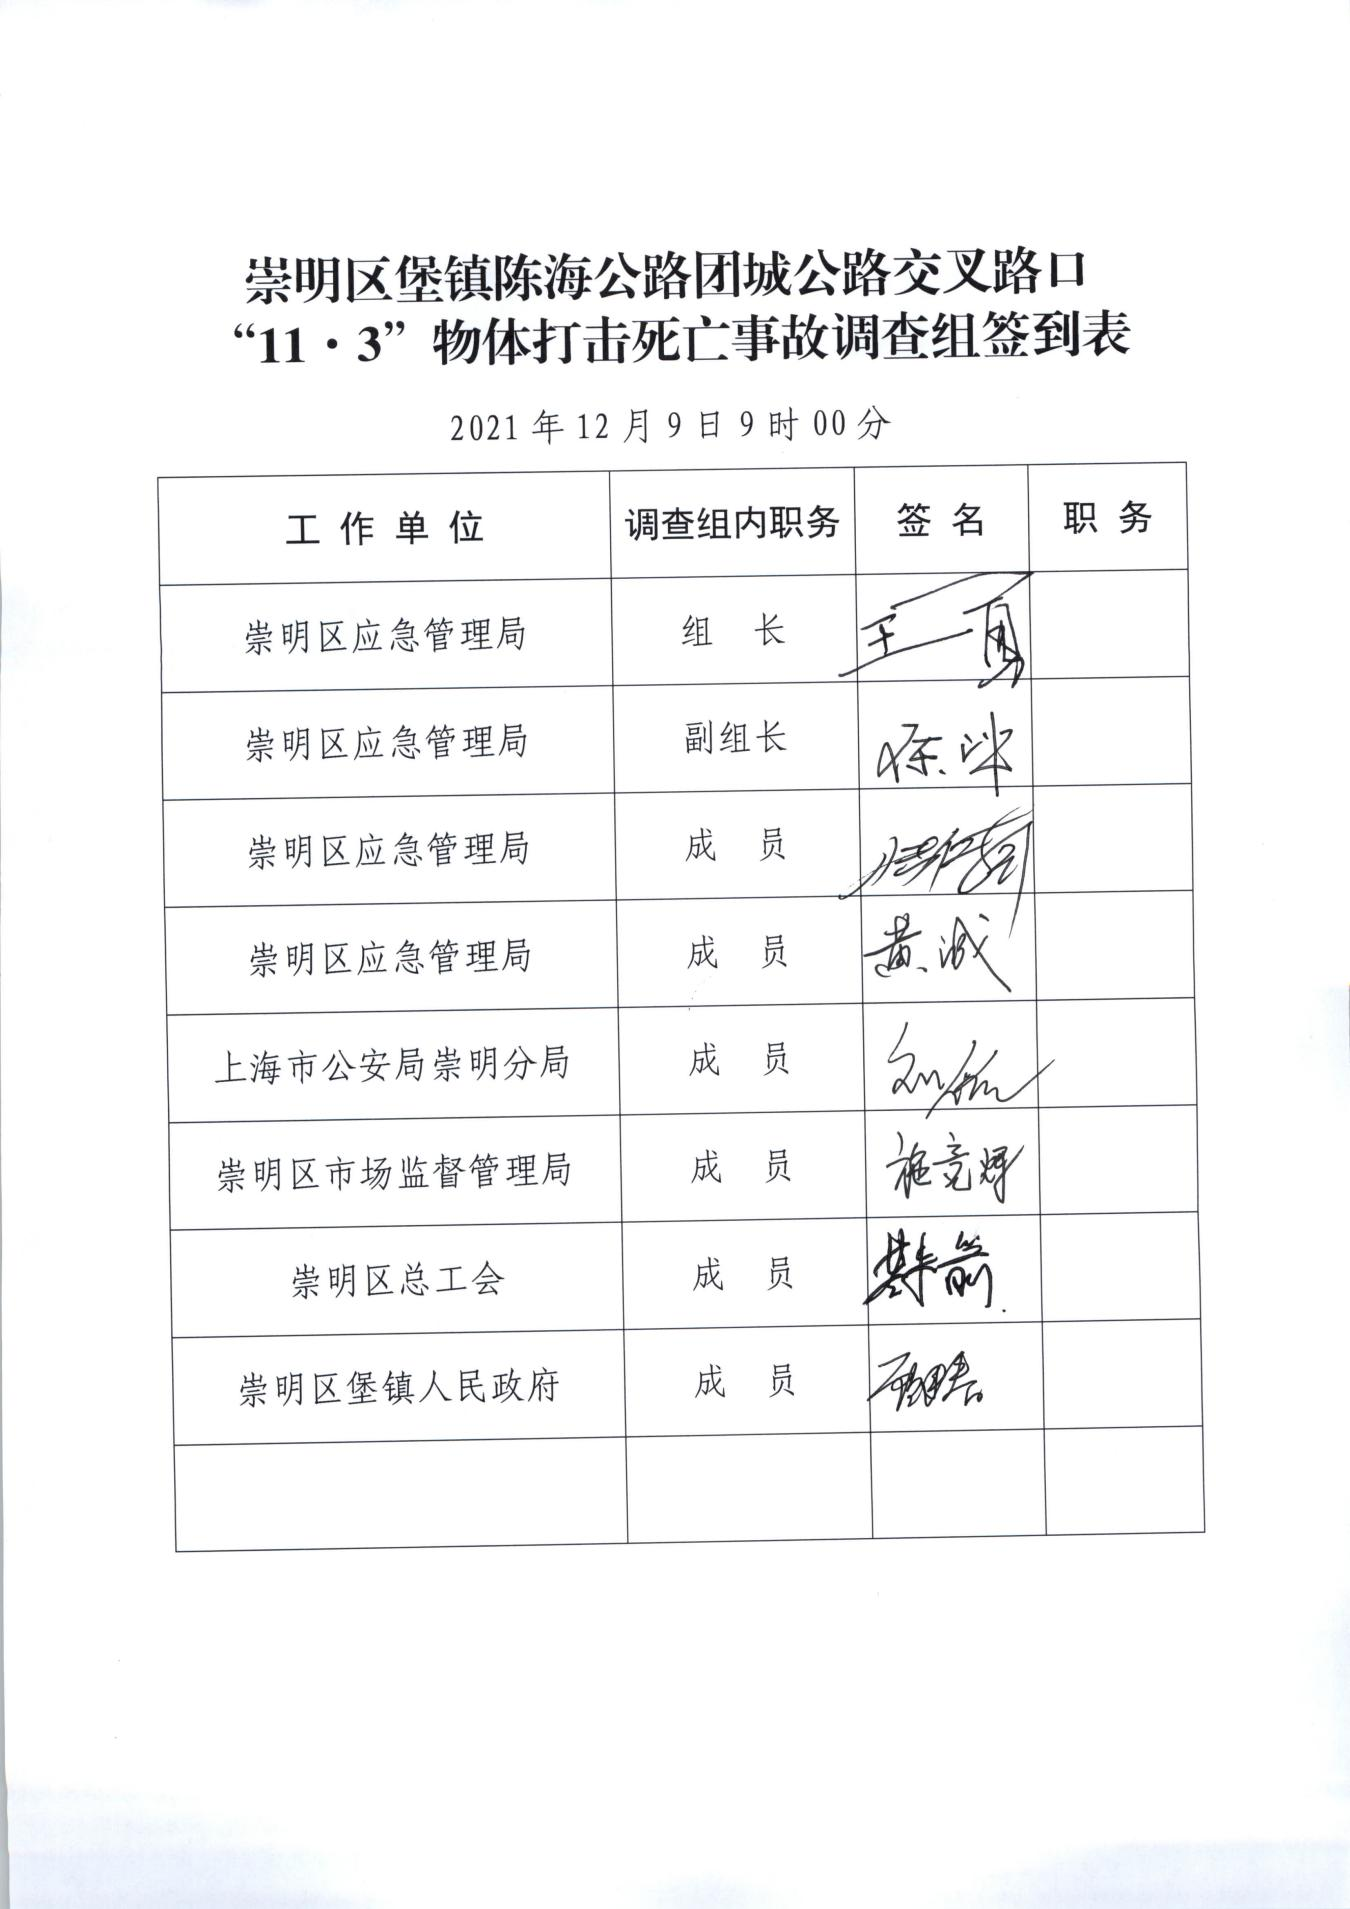 崇明区堡镇陈海公路团城公路交叉路口
“11·3”物体打击死亡事故调查组签到表
2021年12月9日9时00分
工作单位 调查组内职务 签名 职务
崇明区应急管理局 组长
崇明区应急管理局 副组长
崇明区应急管理局 成员
崇明区应急管理局 成员 黄诚
上海市公安局崇明分局 成员
崇明区市场监督管理局 成员 施竞辉
崇明区总工会 成员
崇明区堡镇人民政府 成员